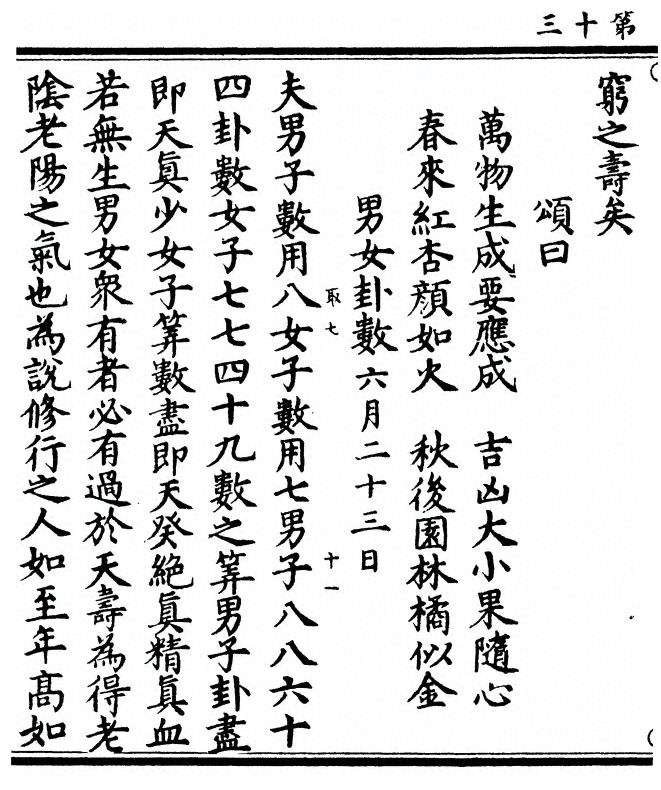 第十三
窮之壽矣
頌曰
萬物生成要應成　吉凶大小果隨心
春來紅杏顏如火　秋後園林橘似金
男女卦數六月二十三日
取七　十一
夫男子數用八女子數用七男子八八六十
四卦數女子七七四十九數之筭男子卦盡
即天眞少女子筭數盡即天癸絕眞精眞血
若無生男女衆有者必有過於天壽為得老
陰老陽之氣也為說修行之人如至年髙如